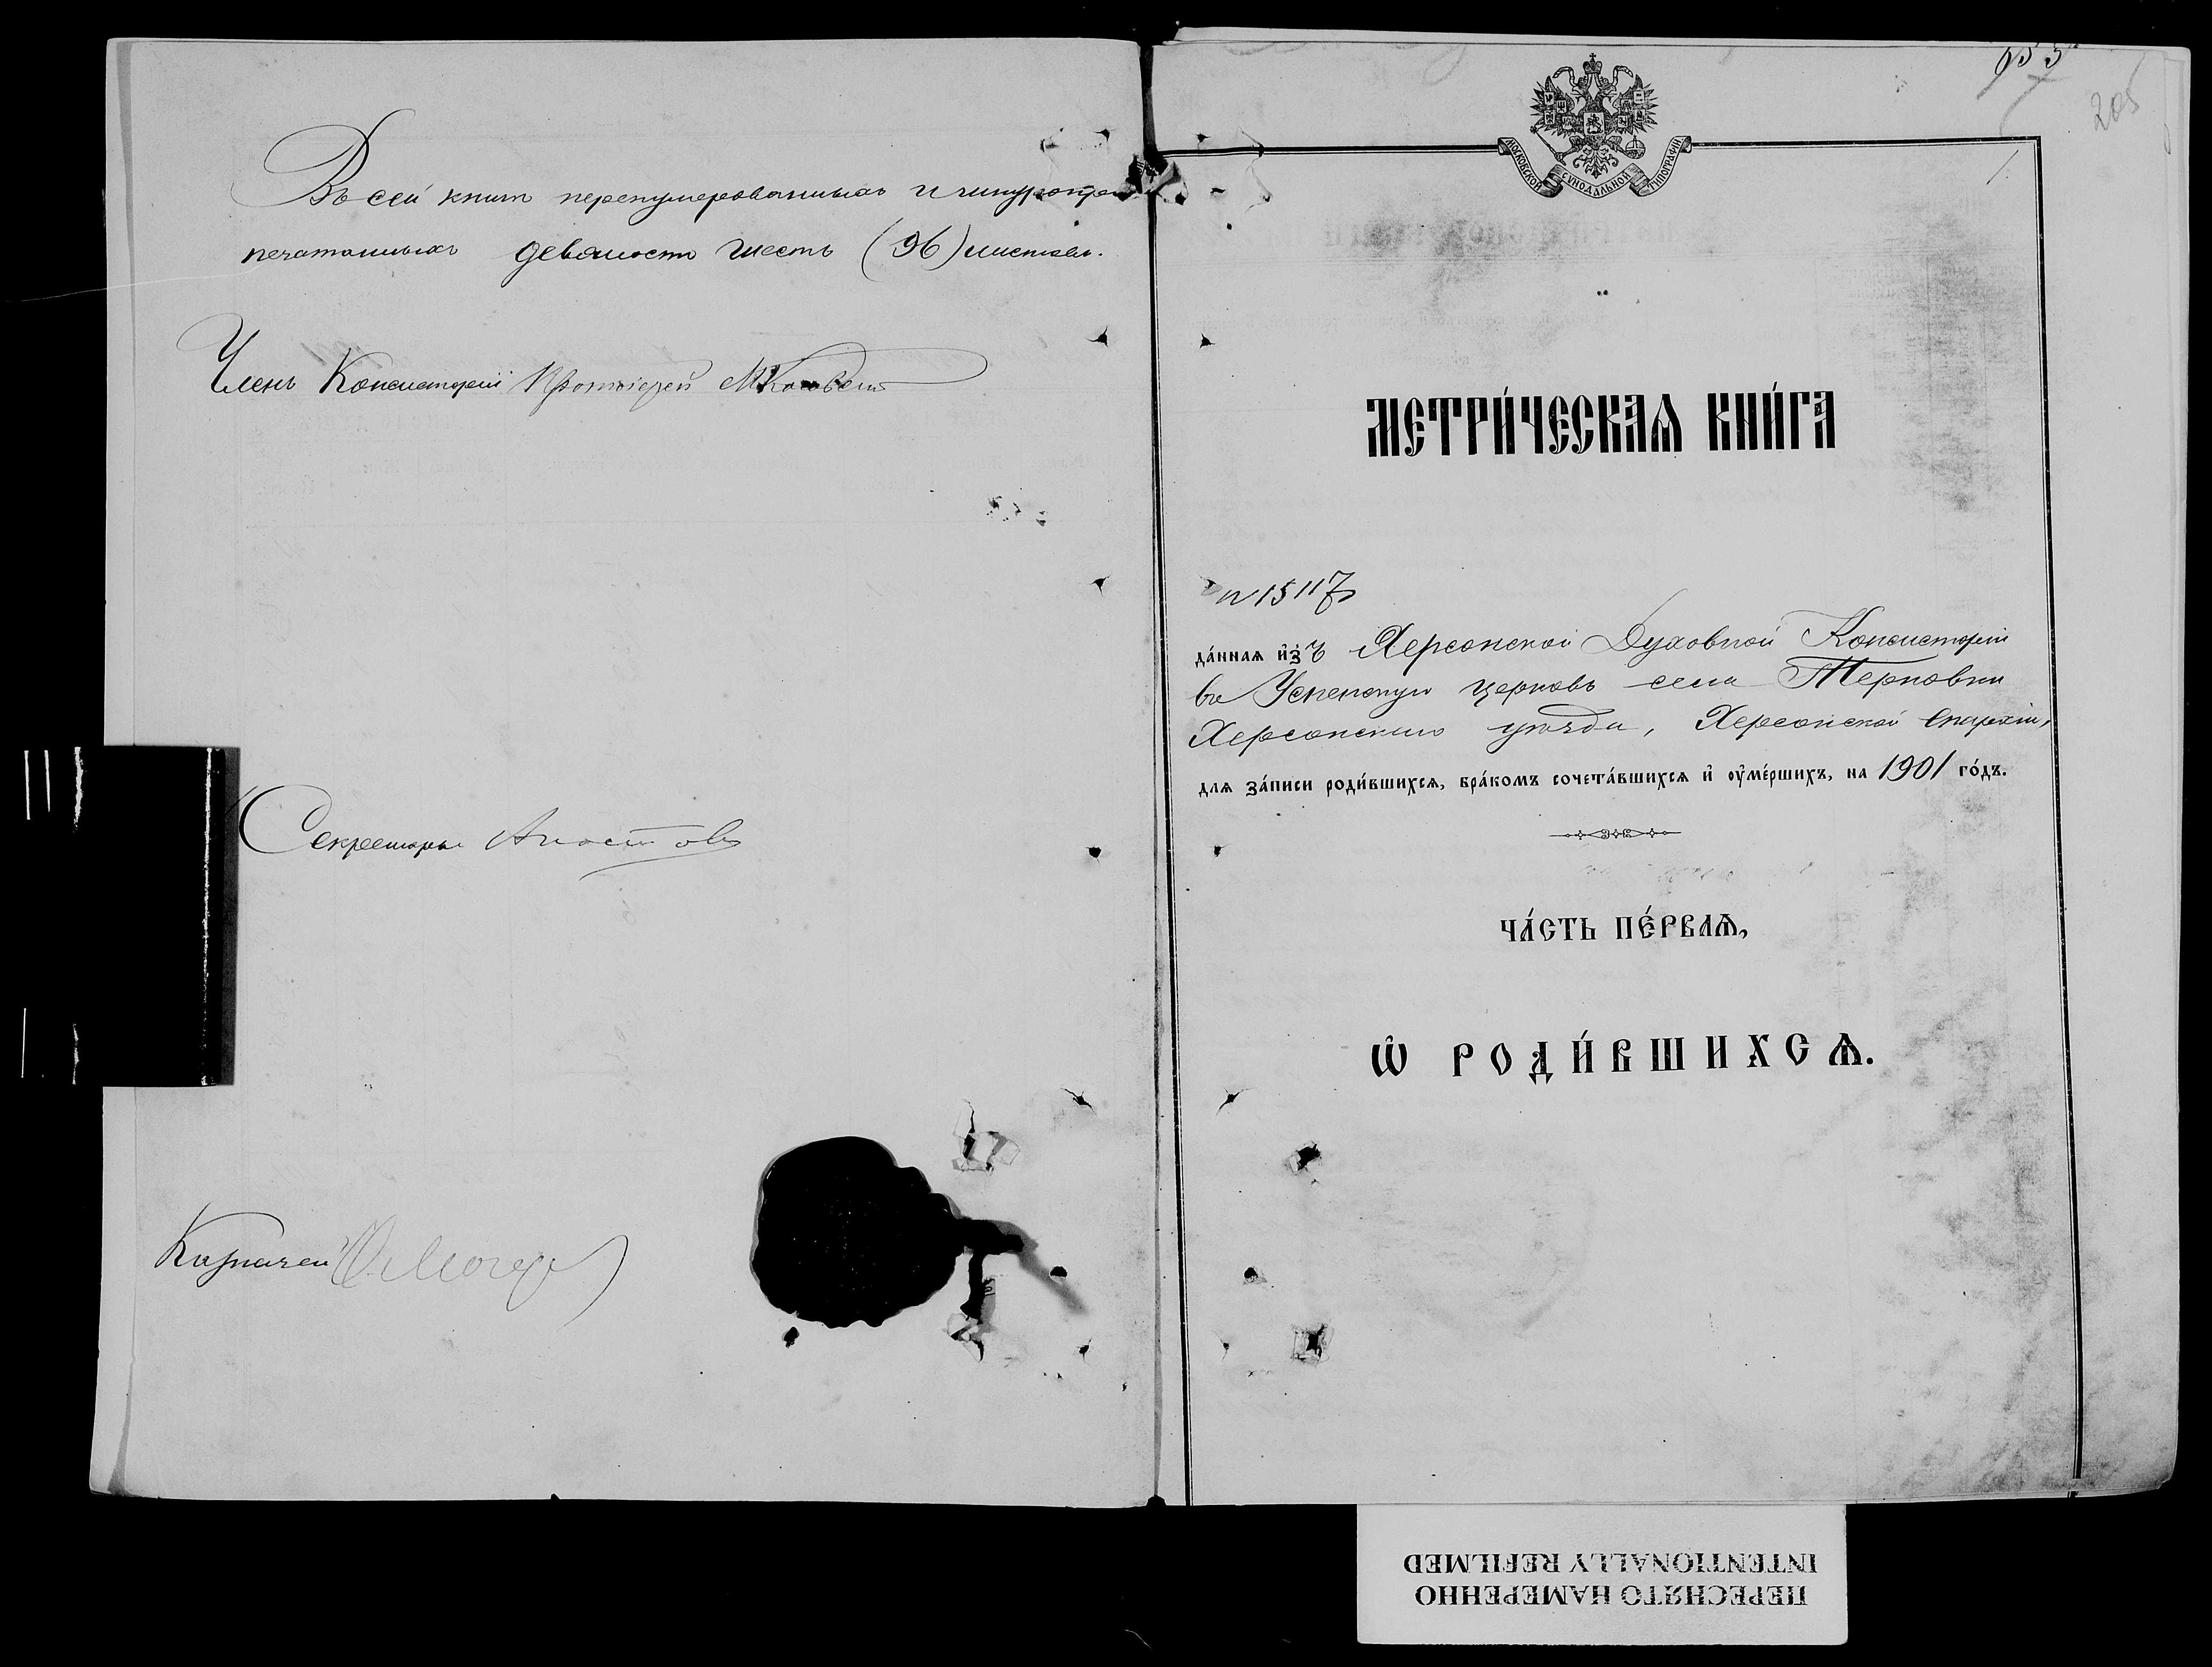 Въ сей книгѣ перенумерованныхъ и шнуропри
печатанныхъ девяносто шесть (96) листовъ.
Членъ Консисторіи Протоіерей
Секретарь
Казначей
205
МОСКОВСКОЙ СѴНОДАЛЬНОЙ ТИПОГРАФІИ
1
МЕТРИ́ЧЕСКАѦ КНИ́ГА
№ 15117
да́ннаѧ и҆зъ Херсонской Духовной Консисторіи
въ Успенскую церковь села Терновки
Херсонскаго уѣзда, Херсонской Епархіи,
длѧ за́писи роди́вшихсѧ, бра́комъ сочета́вшихсѧ и҆ оу҆ме́ршихъ, на 1901 го́дъ.
ЧА́СТЬ ПЕ́РВАѦ,
Ѡ҆ РОДИ́ВШИХСѦ.
ПЕРЕСНЯТО НАМЕРЕННО
INTENTIONALLY REFILMED